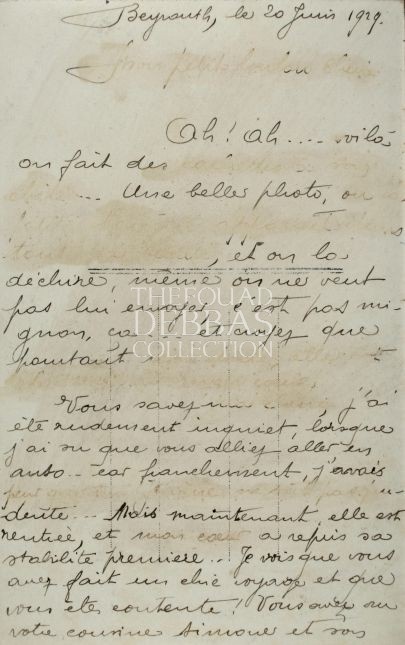 Beyrouth, le 20 Juin 1929.
Ah! Ah.... voilà
on fait des
... Une belle photo, ou
, et on la
déchire, même on ne veut
pas lui envoyer, c'est pas mi-
gnon, ça et croyez que
pourtant!
THE FOUAD
DEBBAS
COLLECTION
Vous savez j'ai
été rudement inquiet, lorsque
j'ai su que vous alliez aller en
auto.. car franchement, j'avais
dente... Mais maintenant, elle est
rentrée, et mon cœur a repris sa
stabilité première... Je vois que vous
avez fait un chic voyage et que
vous êtes contente! Vous avez vu
votre cousine Simone et son